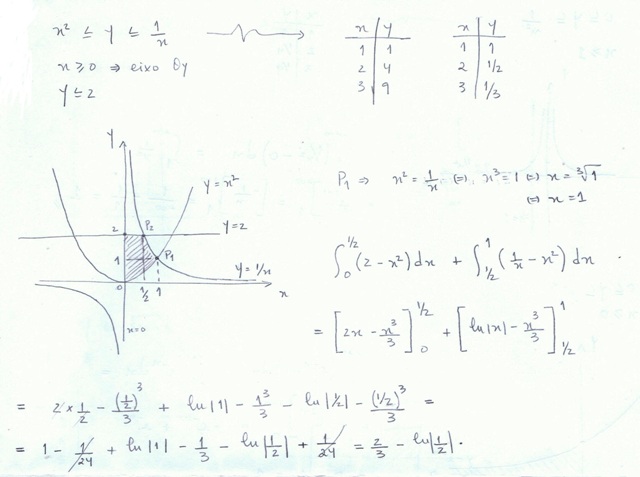 x² ≤ y ≤ 1/x
x ≥ 0 ⇒ eixo Oy
y ≤ 2
x | y
1 | 1
2 | 4
3 | 9
x | y
1 | 1
2 | 1/2
3 | 1/3
y
y = x²
2
P2
y = 2
1
P1
y = 1/x
0
1/2
1
x
x=0
P1 ⇒ x² = 1/x ⇔ x³ = 1 ⇔ x = ∛1
⇔ x = 1
∫₀^{1/2} (2 - x²) dx + ∫_{1/2}^{1} (1/x - x²) dx .
= [2x - x³/3]₀^{1/2} + [ln|x| - x³/3]_{1/2}^{1}
= 2 × 1/2 - (1/2)³/3 + ln|1| - 1³/3 - ln|1/2| - (1/2)³/3 =
= 1 - 1/24 + ln|1| - 1/3 - ln|1/2| + 1/24 = 2/3 - ln|1/2| .